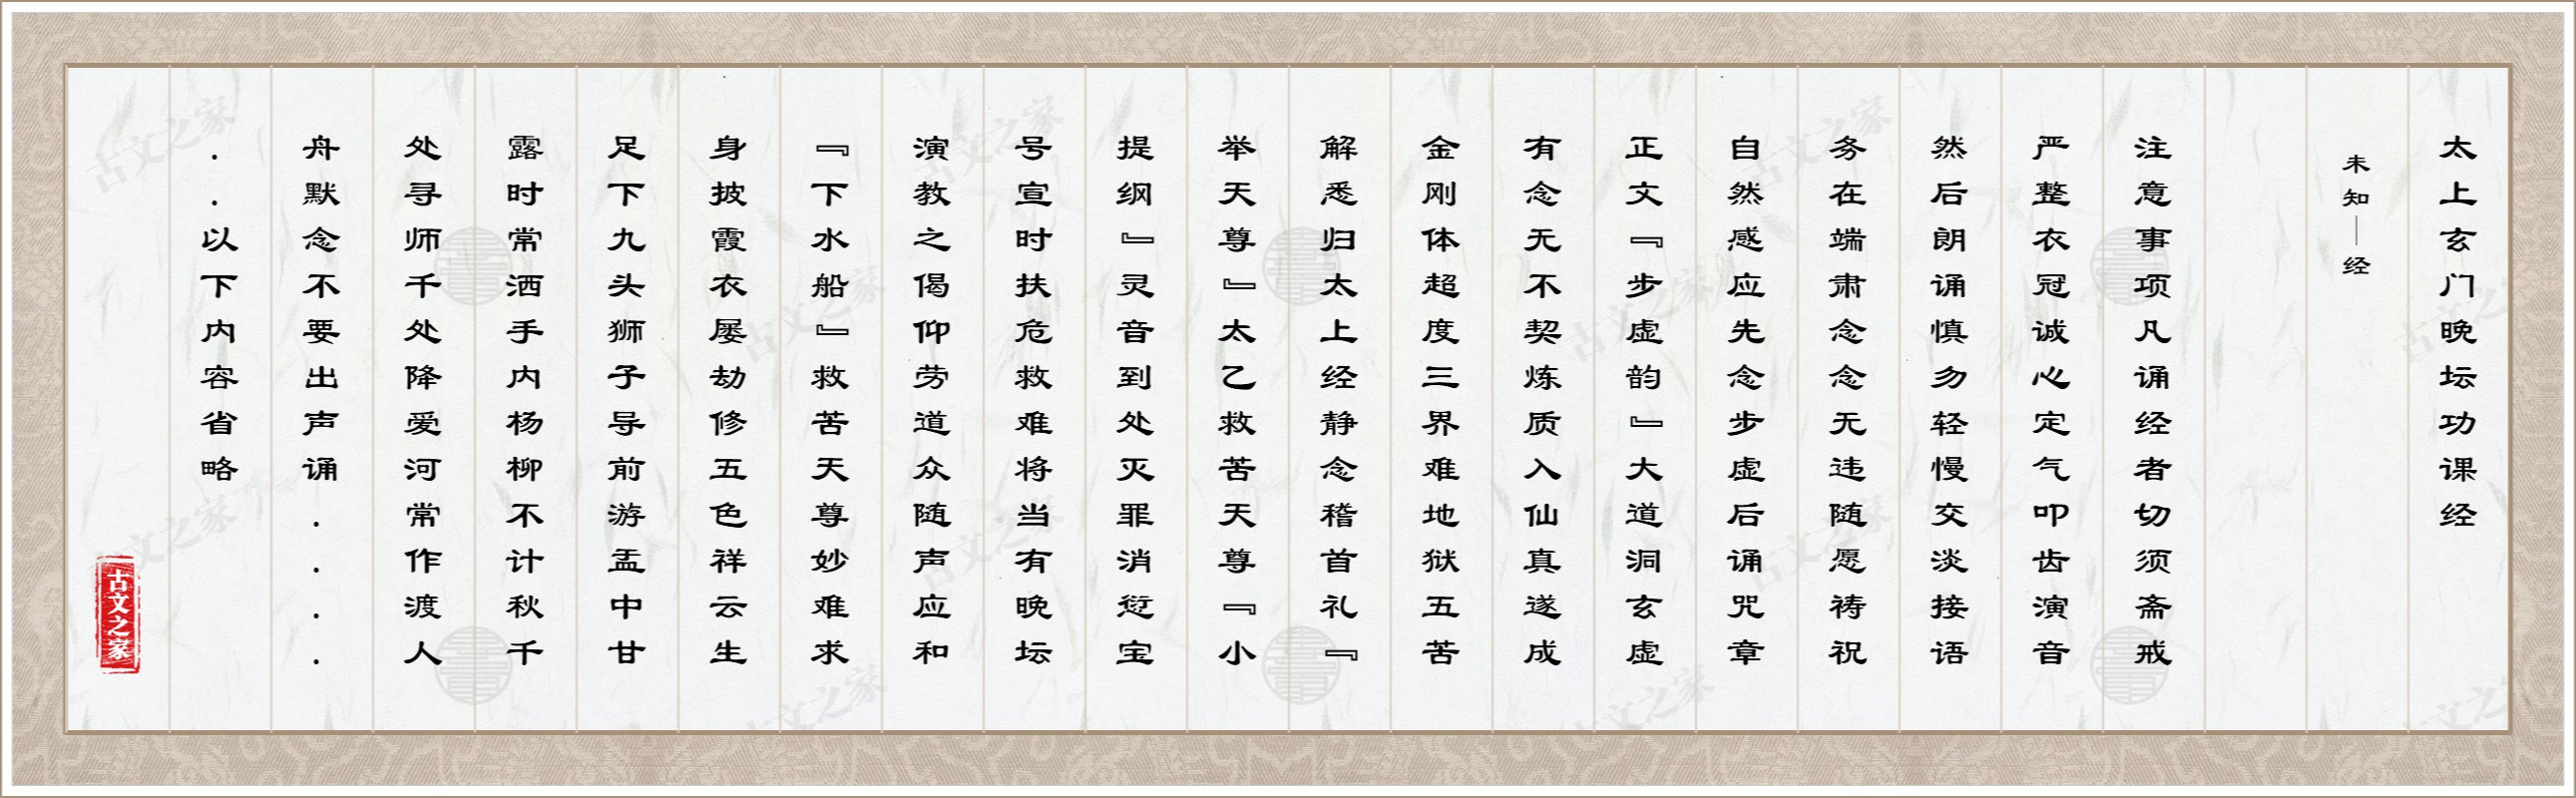 太上玄门晚坛功课经
未知｜经
注意事项凡诵经者切须斋戒
严整衣冠诚心定气叩齿演音
然后朗诵慎勿轻慢交淡接语
务在端肃念念无违随愿祷祝
自然感应先念步虚后诵咒章
正文『步虚韵』大道洞玄虚
有念无不契炼质入仙真遂成
金刚体超度三界难地狱五苦
解悉归太上经静念稽首礼『
举天尊』太乙救苦天尊『小
提纲』灵音到处灭罪消愆宝
号宣时扶危救难将当有晚坛
演教之偈仰劳道众随声应和
『下水船』救苦天尊妙难求
身披霞衣屡劫修五色祥云生
足下九头狮子导前游盂中甘
露时常洒手内杨柳不计秋千
处寻师千处降爱河常作渡人
舟默念不要出声诵....
..以下内容省略
古文之家